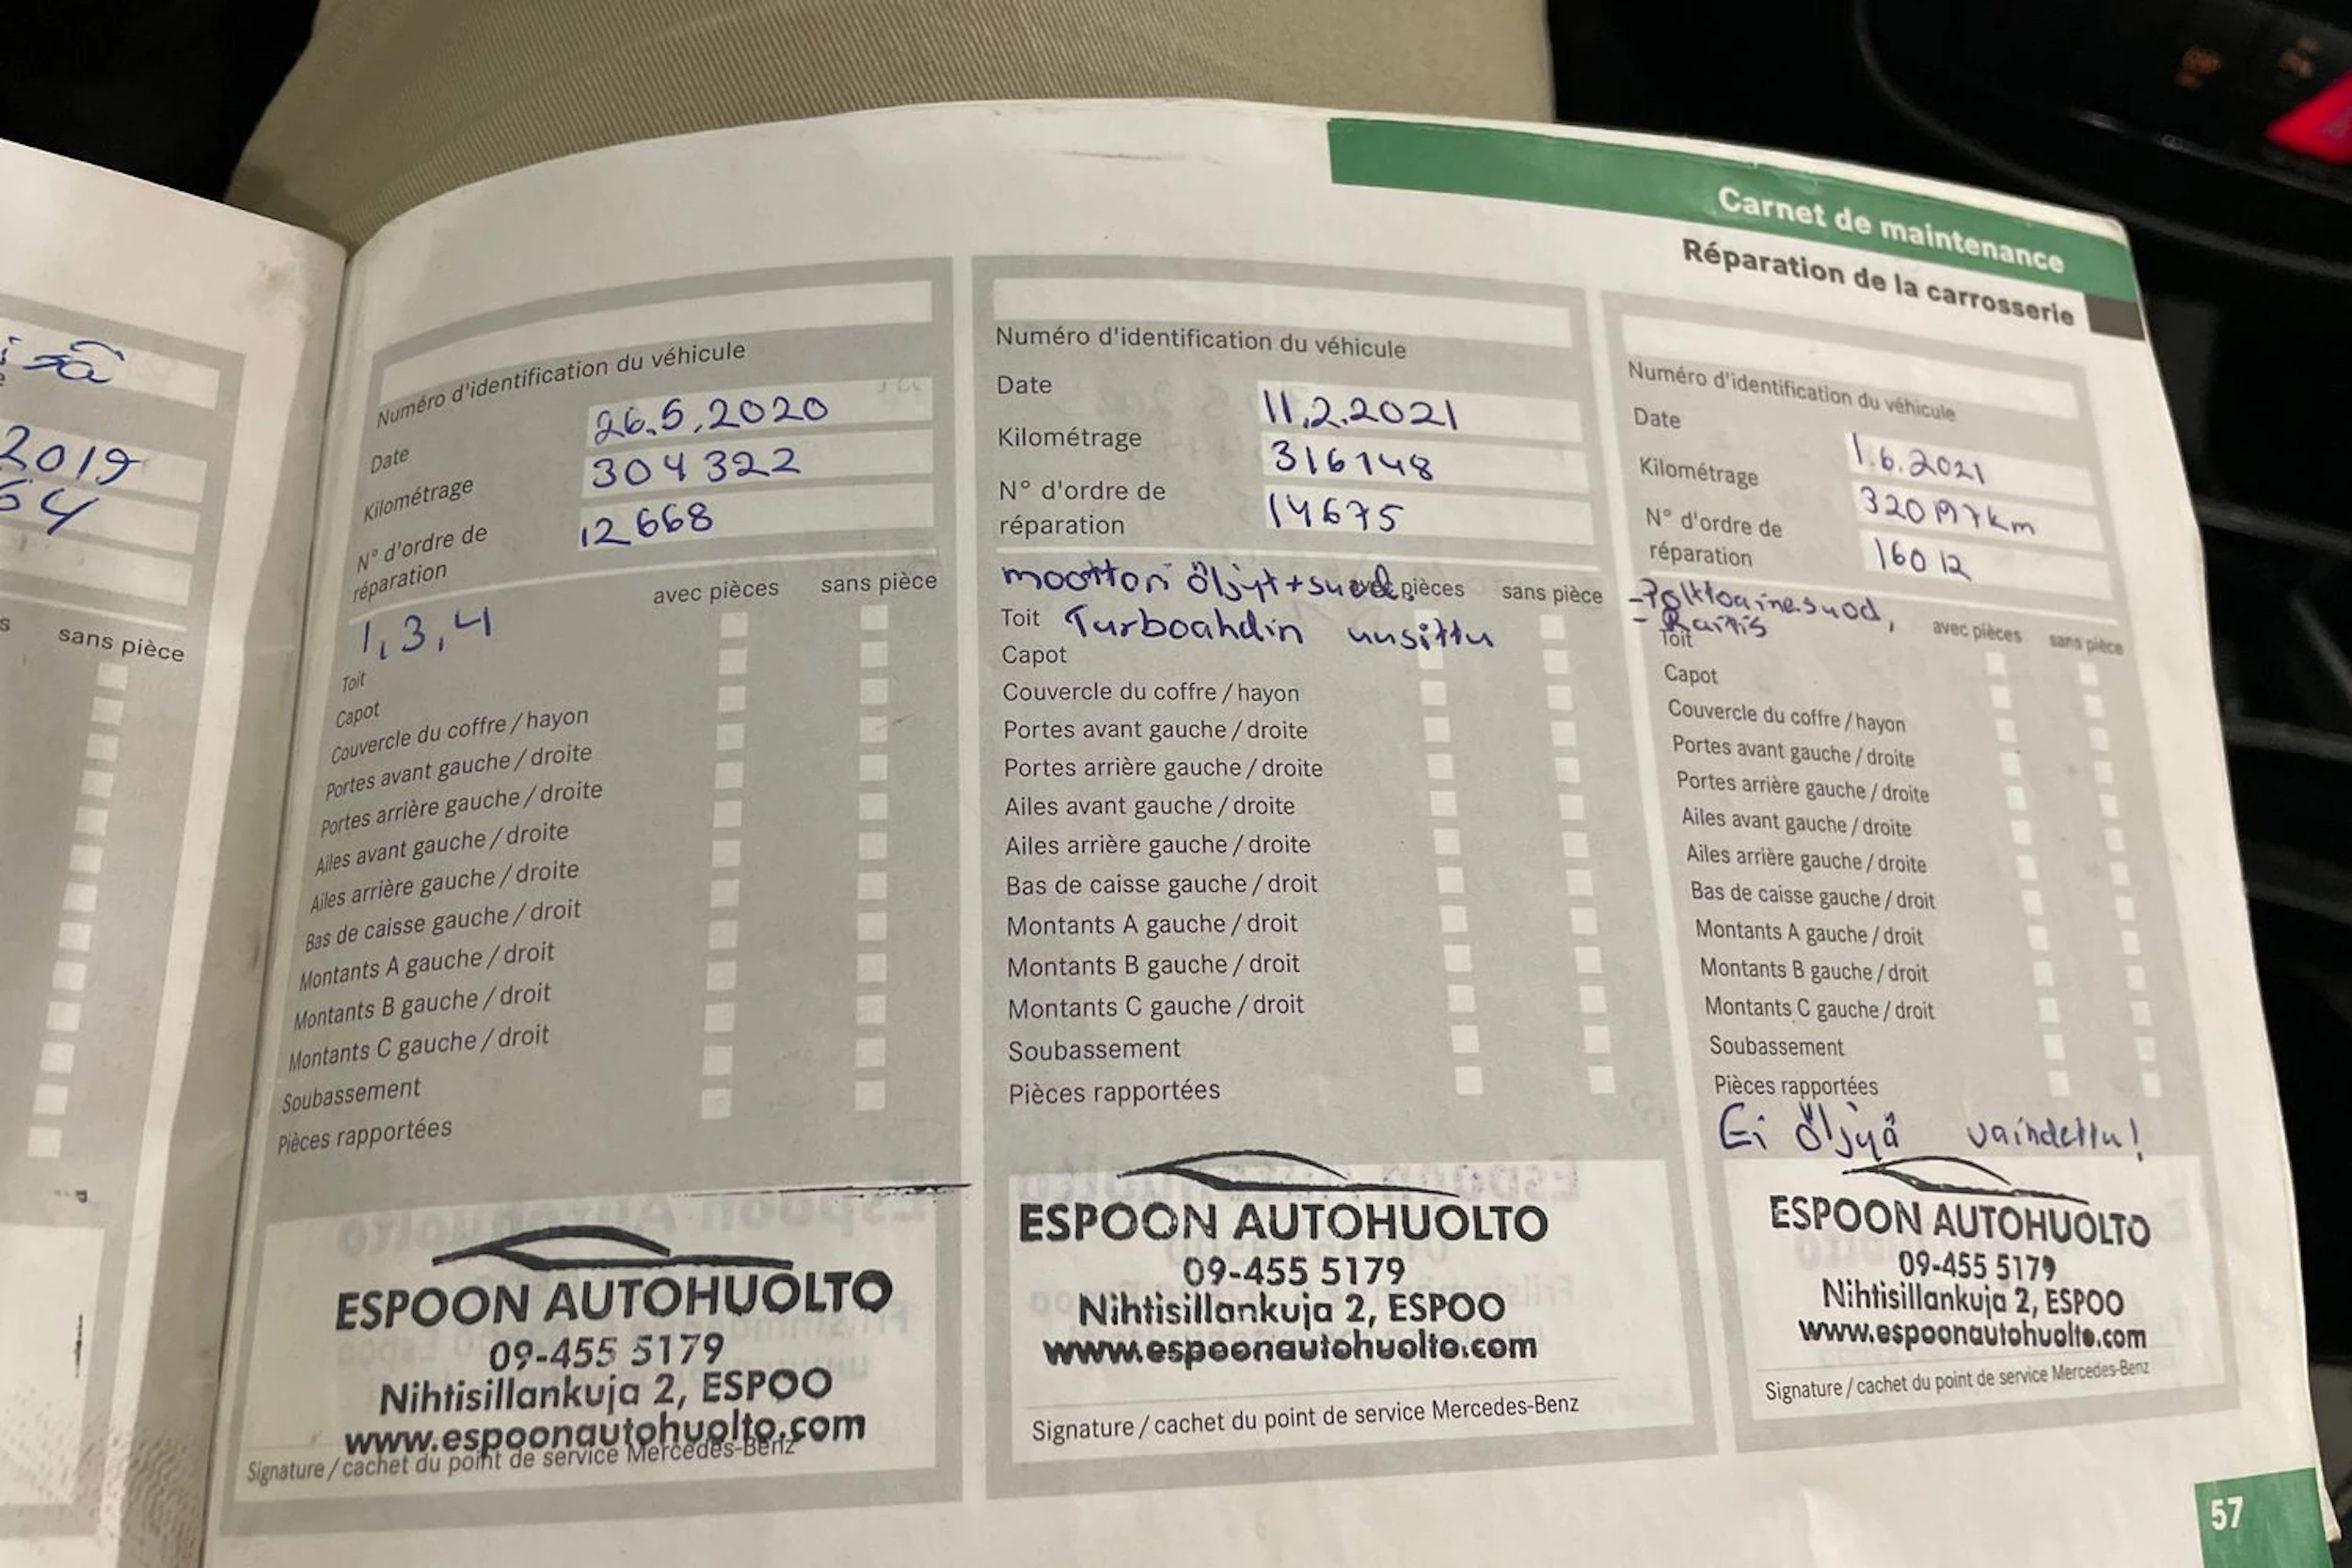 2019
54
sans pièce
Carnet de maintenance
Réparation de la carrosserie
Numéro d'identification du véhicule
Date 26.5.2020
Kilométrage 304 322
N° d'ordre de
réparation 12668
avec pièces sans pièce
1,3,4
Toit
Capot
Couvercle du coffre / hayon
Portes avant gauche / droite
Portes arrière gauche / droite
Ailes avant gauche / droite
Ailes arrière gauche / droite
Bas de caisse gauche / droit
Montants A gauche / droit
Montants B gauche / droit
Montants C gauche / droit
Soubassement
Pièces rapportées
ESPOON AUTOHUOLTO
09-455 5179
Nihtisillankuja 2, ESPOO
www.espoonautohuolto.com
Signature / cachet du point de service Mercedes-Benz
Numéro d'identification du véhicule
Date 11.2.2021
Kilométrage 316148
N° d'ordre de
réparation 14675
moottori öljyt+suod.
avec pièces sans pièce
Toit Turboahdin uusittu
Capot
Couvercle du coffre / hayon
Portes avant gauche / droite
Portes arrière gauche / droite
Ailes avant gauche / droite
Ailes arrière gauche / droite
Bas de caisse gauche / droit
Montants A gauche / droit
Montants B gauche / droit
Montants C gauche / droit
Soubassement
Pièces rapportées
ESPOON AUTOHUOLTO
09-455 5179
Nihtisillankuja 2, ESPOO
www.espoonautohuolto.com
Signature / cachet du point de service Mercedes-Benz
Numéro d'identification du véhicule
Date 1.6.2021
Kilométrage 320197km
N° d'ordre de
réparation 16012
-Polttoainesuod,
- Raitis
avec pièces sans pièce
Toit
Capot
Couvercle du coffre / hayon
Portes avant gauche / droite
Portes arrière gauche / droite
Ailes avant gauche / droite
Ailes arrière gauche / droite
Bas de caisse gauche / droit
Montants A gauche / droit
Montants B gauche / droit
Montants C gauche / droit
Soubassement
Pièces rapportées
Ei öljyä vaihdettu!
ESPOON AUTOHUOLTO
09-455 5179
Nihtisillankuja 2, ESPOO
www.espoonautohuolto.com
Signature / cachet du point de service Mercedes-Benz
57